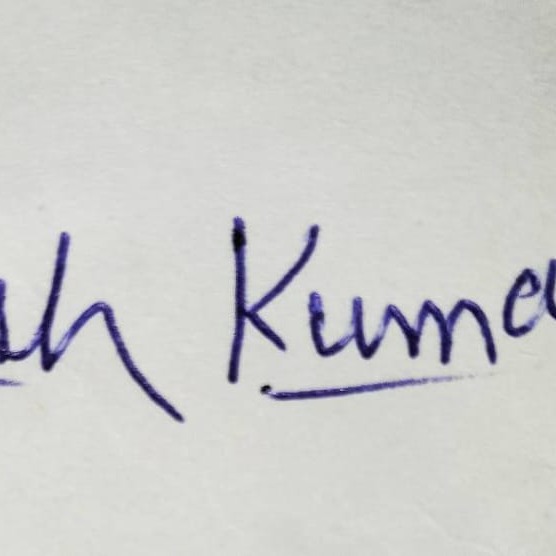 sh Kuma